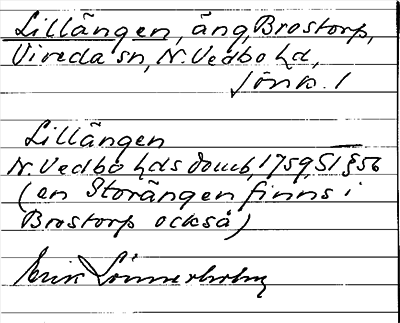 Lillängen, äng, Brostorp,
Vireda sn, N. Vedbo hd,
Jönk. l
Lillängen
N. Vedbo hds domb, 1759, S1 § 56
(en Storängen finns i
Brostorp också)
Erik Lönnerholm